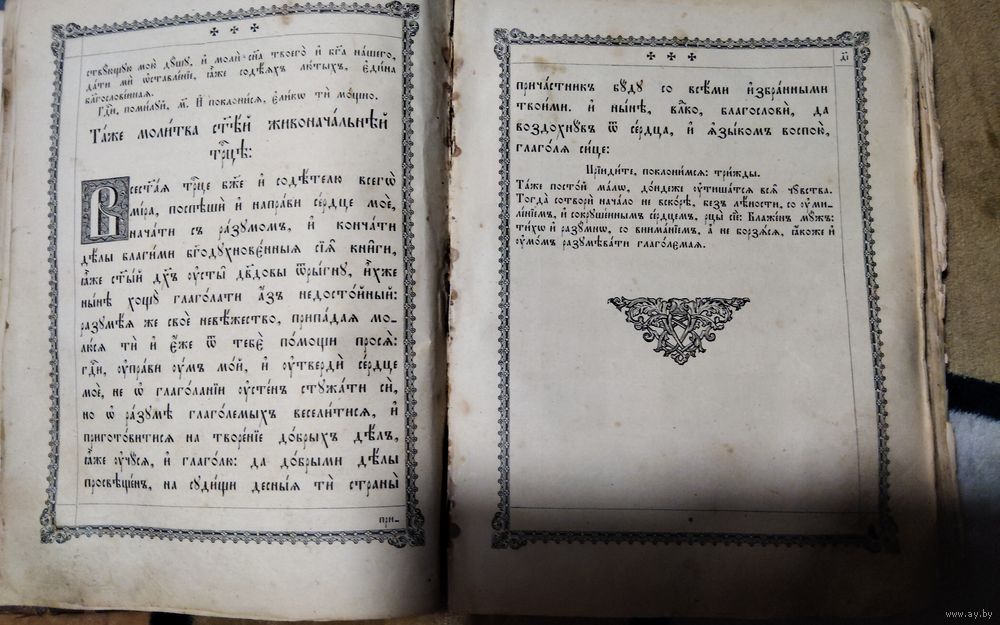 ствꙋющꙋю мою̀ дꙋ́шꙋ, и҆ молѝ сн҃а твоего̀ и҆ бг҃а на́шего,
да́ти мѝ ѡ҆ставле́нїе, ꙗ҆̀же содѣ́ѧхъ лю́тыхъ, є҆ди́на
блг҃ослове́ннаѧ.
Гдⷭ҇и, поми́лꙋй, м҃. И҆ поклони́сѧ, є҆ли́кѡ тѝ мо́щно.
Та́же моли́тва ст҃ѣ́й живонача́льнѣй
трⷪ҇цѣ:
Всест҃а́ѧ трⷪ҇це бж҃е и҆ содѣ́телю всегѡ̀
мі́ра, поспѣшѝ и҆ напра́ви се́рдце моѐ,
нача́ти съ ра́зꙋмомъ, и҆ конча́ти
дѣ́лы благи́ми бг҃одꙋхнове́нныѧ сїѧ̑ кни̑ги,
ꙗ҆̀же ст҃ы́й дх҃ъ ᲂу҆сты̀ дв҃довы ѿры́гнꙋ, и҆́хже
ны́нѣ хощꙋ̀ глаго́лати а҆́зъ недосто́йный:
разꙋмѣ́ѧ же своѐ невѣ́жество, припа́даѧ мо-
лю́сѧ тѝ и҆ є҆́же ѿ тебє̀ по́мощи просѧ̀:
гдⷭ҇и, ᲂу҆пра́ви ᲂу҆́мъ мо́й, и҆ ᲂу҆твердѝ се́рдце
моѐ, не ѡ҆ глаго́ланїи ᲂу҆сте́нъ стꙋжа́ти сѝ,
но ѡ҆ ра́зꙋмѣ глаго́лемыхъ весели́тисѧ, и҆
пригото́витисѧ на творе́нїе до́брыхъ дѣ́лъ,
ꙗ҆̀же ᲂу҆чꙋ́сѧ, и҆ глаго́лю: да до́брыми дѣ́лы
просвѣще́нъ, на сꙋди́щи десны́ѧ тѝ страны̀
при-
д҃і
прича́стникъ бꙋ́дꙋ со всѣ́ми и҆збра́нными
твои́ми. и҆ ны́нѣ, влⷣко, благословѝ, да
воздохнꙋ́въ ѿ се́рдца, и҆ ѧ҆зы́комъ воспою̀,
глаго́лѧ си́це:
Прїиди́те, поклони́мсѧ: три́жды.
Та́же посто́й ма́лѡ, до́ндеже ᲂу҆тиша́тсѧ всѧ̑ чꙋ̑вства.
Тогда̀ сотворѝ нача́ло не вско́рѣ, безъ лѣ́ности, со ᲂу҆ми-
ле́нїемъ, и҆ сокрꙋше́ннымъ се́рдцемъ, рцы̀ сїѐ: Блаже́нъ мꙋ́жъ:
ти́хѡ и҆ разꙋ́мнѡ, со внима́нїемъ, а҆ не борзѧ́сѧ, ꙗ҆́коже и҆
ᲂу҆мо́мъ разꙋмѣва́ти глаго́лемаѧ.
www.ay.by